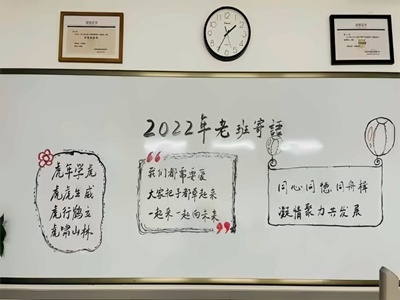 2022年老班寄語
虎年学虎
虎虎生威
虎行鹤立
虎啸山林
我们都需要爱
大家把手都牵起来
一起来 一起向未来
同心同德 同舟楫
凝情聚力共发展